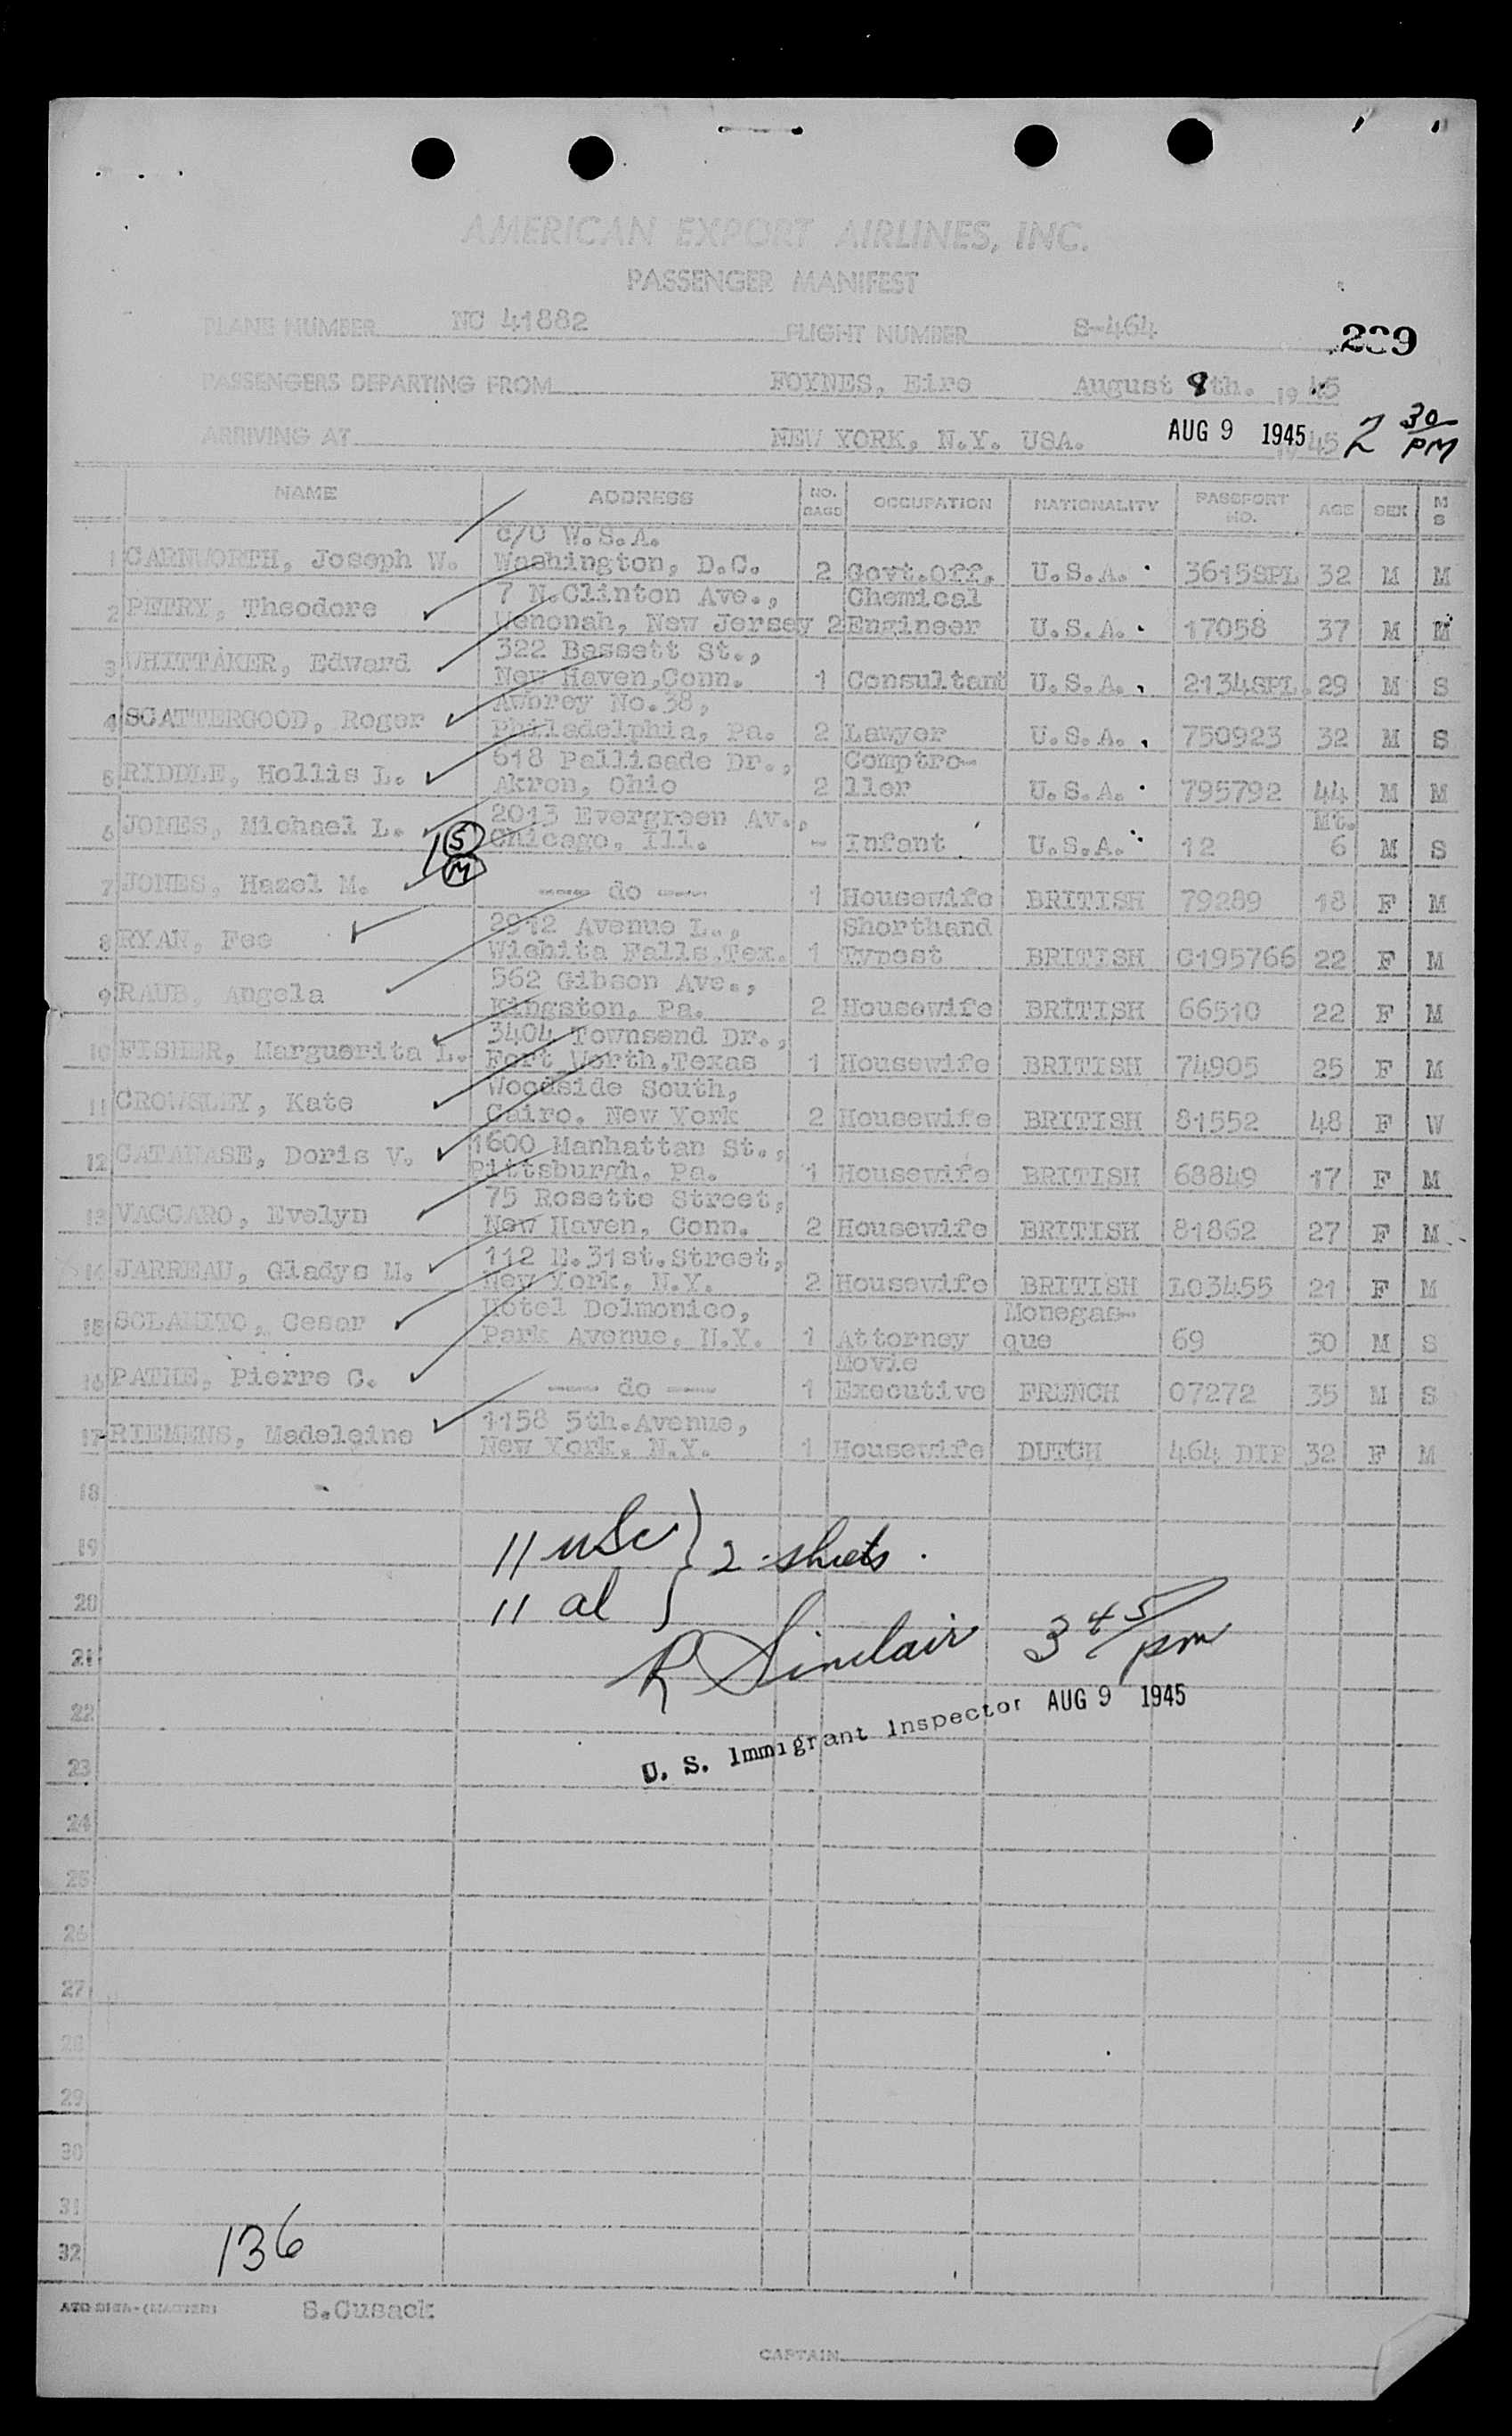 AMERICAN EXPORT AIRLINES, INC.
PASSENGER MANIFEST
PLANE NUMBER NC 41882 FLIGHT NUMBER S-464
289
PASSENGERS DEPARTING FROM FOYNES, Eire August 8th. 1945
ARRIVING AT NEW YORK, N.Y. USA. AUG 9 1945 45 2 30 PM
NAME ADDRESS NO. BAGS OCCUPATION NATIONALITY PASSPORT NO. AGE SEX M S
c/o W.S.A.
1 CARNWORTH, Joseph W. Washington, D.C. 2 Govt.Off. U.S.A. 3615SPL 32 M M
7 N.Clinton Ave., Chemical
2 PETRY, Theodore Wenonah, New Jersey 2 Engineer U.S.A. 17058 37 M M
322 Bassett St.,
3 WHITTAKER, Edward New Haven,Conn. 1 Consultant U.S.A. 2134SPL. 29 M S
Awbrey No.38,
4 SCATTERGOOD, Roger Philadelphia, Pa. 2 Lawyer U.S.A. 750923 32 M S
618 Pallisade Dr., Comptro-
5 RIDDLE, Hollis L. Akron, Ohio 2 ller U.S.A. 795792 44 M M
2013 Evergreen Av., Mt.
6 JONES, Michael L. Chicago, Ill. - Infant U.S.A. 12 6 M S
S
M
7 JONES, Hazel M. ---- do ---- 1 Housewife BRITISH 79289 18 F M
2912 Avenue L., Shorthand
8 RYAN, Fee Wichita Falls,Tex. 1 Typest BRITISH C195766 22 F M
562 Gibson Ave.,
9 RAUB, Angela Kingston, Pa. 2 Housewife BRITISH 66510 22 F M
3404 Townsend Dr.,
10 FISHER, Marguerita L. Fort Worth,Texas 1 Housewife BRITISH 74905 25 F M
Woodside South,
11 CROWSLEY, Kate Cairo, New York 2 Housewife BRITISH 81552 48 F W
1600 Manhattan St.,
12 CATANASE, Doris V. Pittsburgh, Pa. 1 Housewife BRITISH 68849 17 F M
75 Rosette Street,
13 VACCARO, Evelyn New Haven, Conn. 2 Housewife BRITISH 81862 27 F M
112 E.31st.Street,
14 JARREAU, Gladys M. New York, N.Y. 2 Housewife BRITISH L03455 21 F M
Hotel Delmonico, Monegas-
15 SOLAMITO, Cesar Park Avenue, N.Y. 1 Attorney que 69 30 M S
Movie
16 PATHE, Pierre C. ---- do ---- 1 Executive FRENCH 07272 35 M S
1158 5th.Avenue,
17 RIEMENS, Madeleine New York, N.Y. 1 Housewife DUTCH 464 DIP 32 F M
18
19 11 USC } 2 sheets.
20 11 al
21 R Sinclair 3 45 pm
22 U. S. Immigrant Inspector AUG 9 1945
23
24
25
26
27
28
29
30
31
32 136
S.Cusack
CAPTAIN